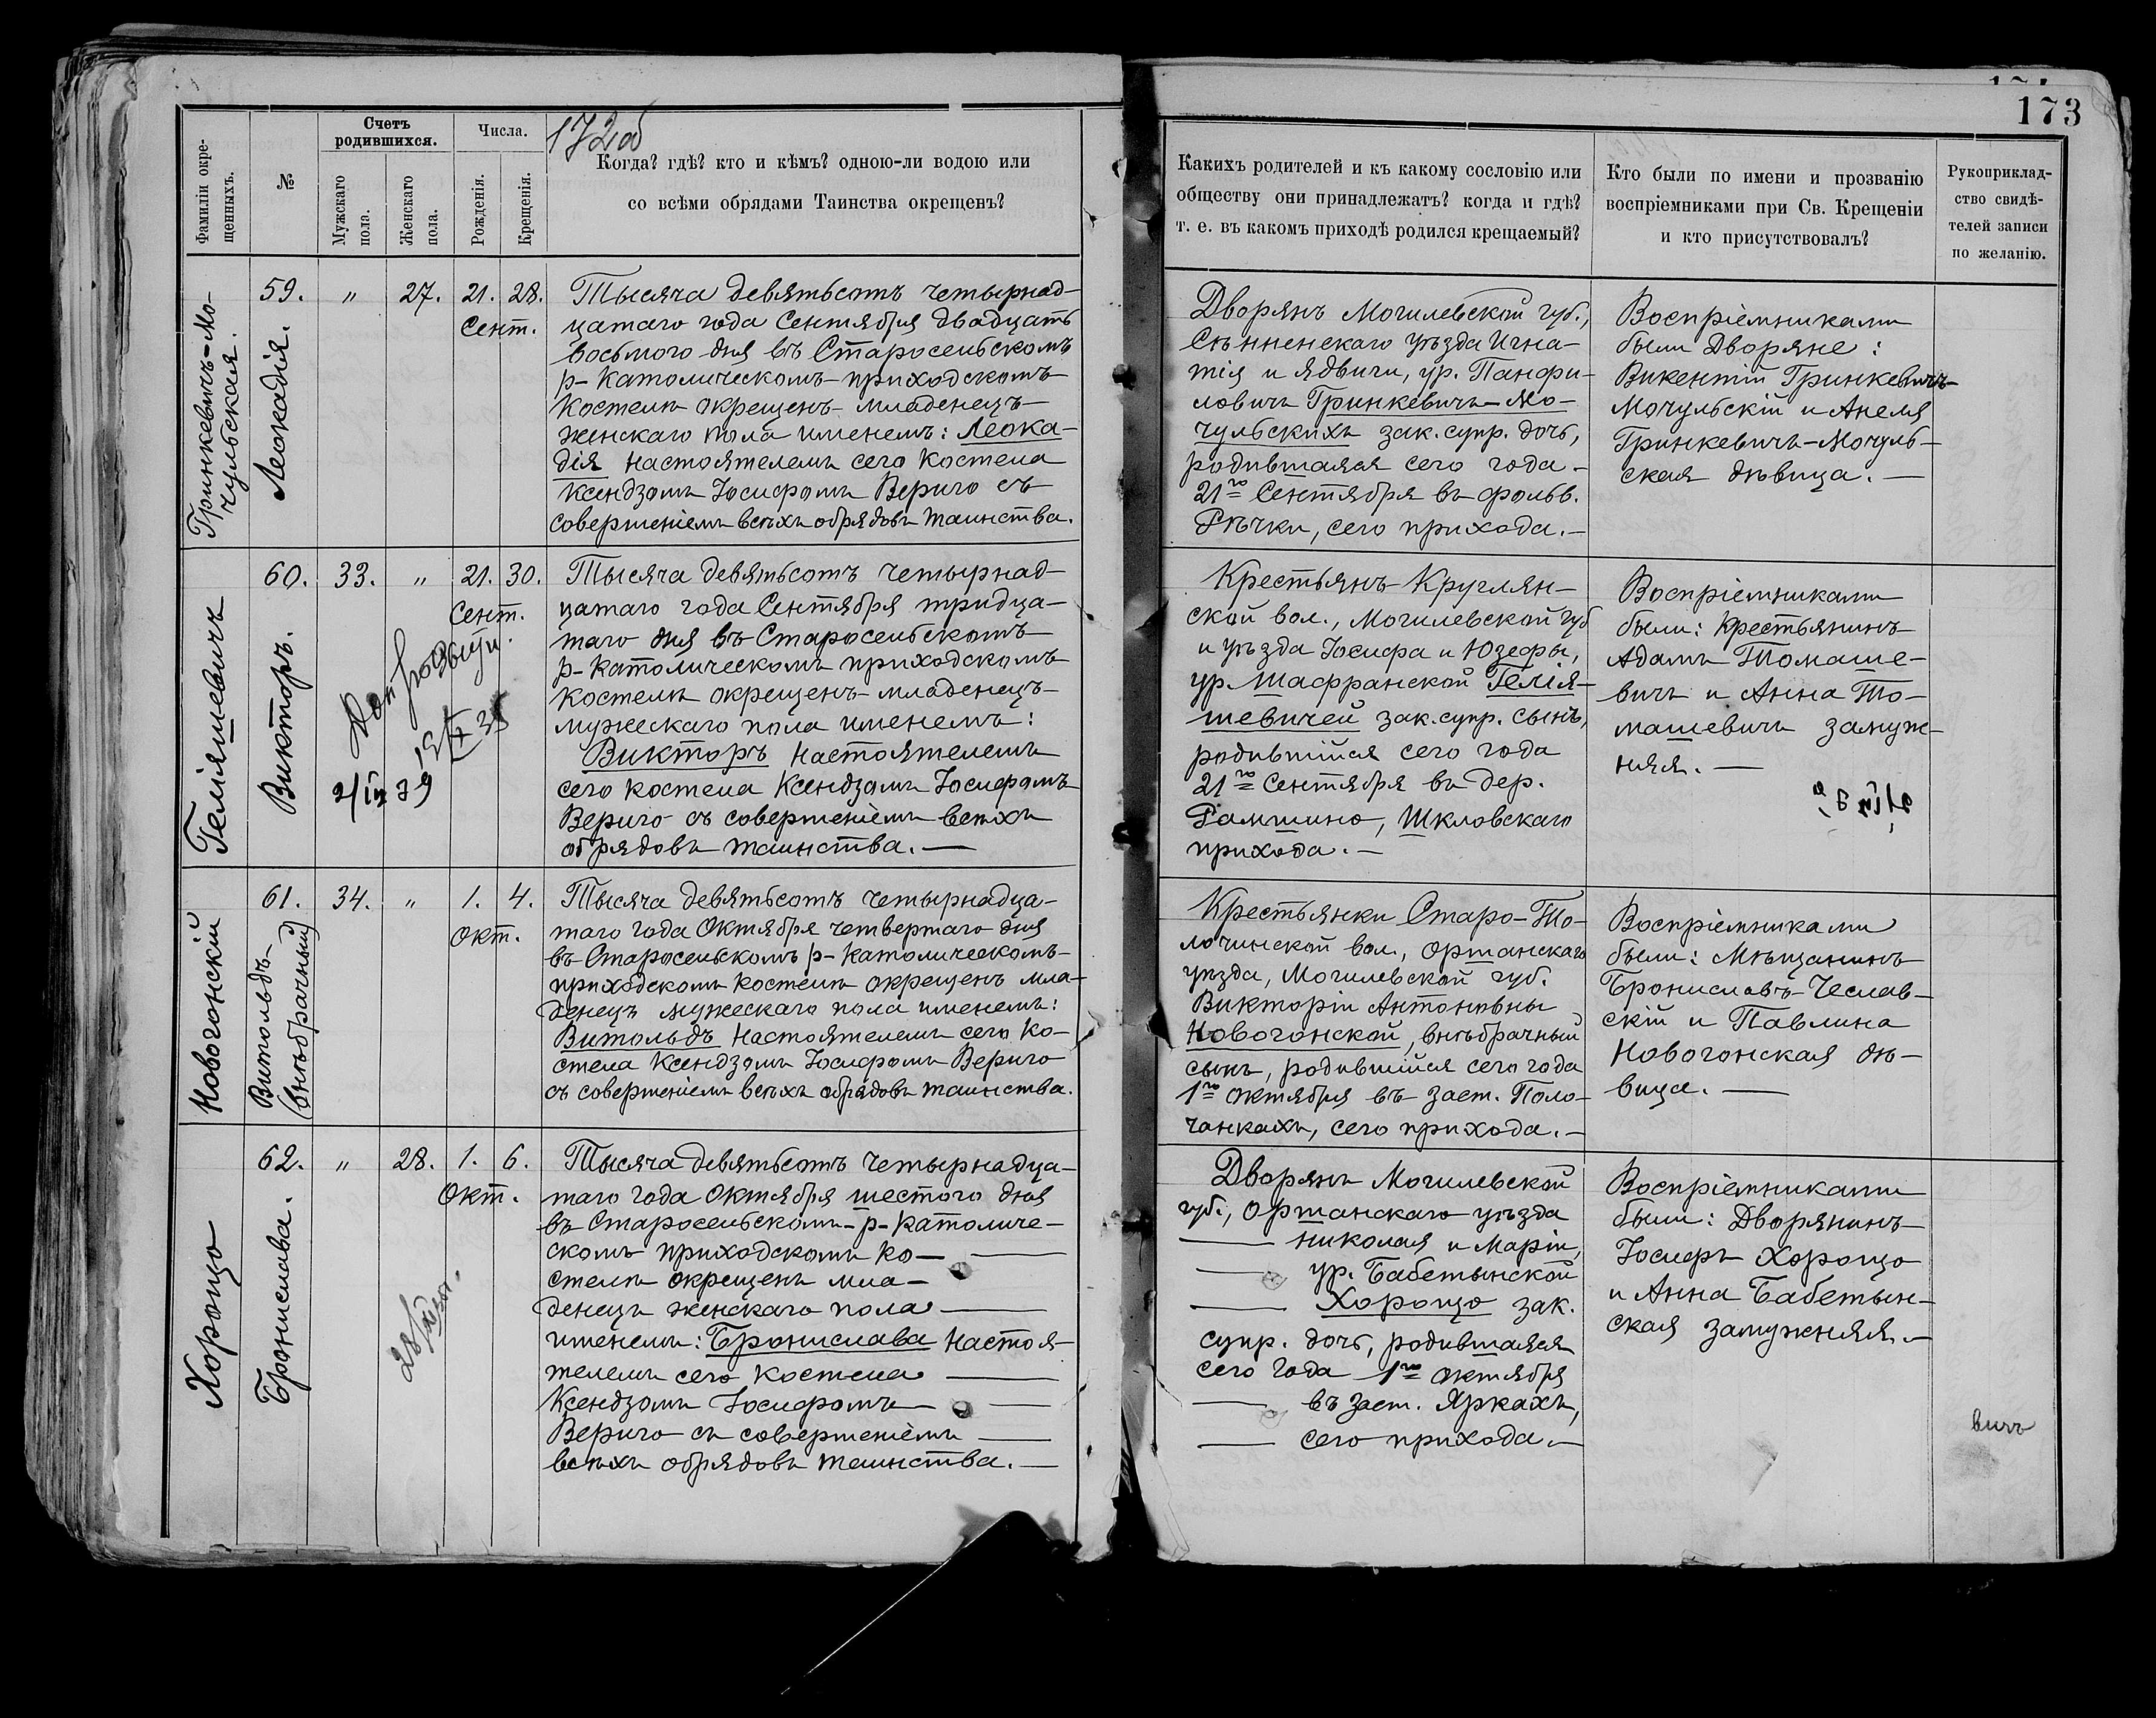 173
172об
Фамиліи окре-
щенныхъ.
№
Счетъ
родившихся.
Мужскаго
пола.
Женскаго
пола.
Числа.
Рожденія.
Крещенія.
Когда? гдѣ? кто и кѣмъ? одною-ли водою или
со всѣми обрядами Таинства окрещенъ?
Какихъ родителей и къ какому сословію или
обществу они принадлежатъ? когда и гдѣ?
т. е. въ какомъ приходѣ родился крещаемый?
Кто были по имени и прозванію
воспріемниками при Св. Крещеніи
и кто присутствовалъ?
Рукоприклад-
ство свидѣ-
телей записи
по желанію.
Гринкевичъ-Мо-
чульская.
59.
Леокадія.
"
27.
21. 28.
Сент.
Тысяча девятьсотъ четырнад-
цатаго года Сентября двадцать
восьмого дня въ Старосельскомъ
р-католическомъ приходскомъ
костелѣ окрещенъ младенецъ
женскаго пола именемъ: Леока-
дія настоятелемъ сего костела
Ксендзомъ Іосифомъ Вериго съ
совершеніемъ всѣхъ обрядовъ таинства.
Дворянъ Могилевской губ.,
Сѣнненскаго уѣзда Игна-
тія и Ядвиги, ур. Панфи-
ловичъ Гринкевичъ-Мо-
чульскихъ зак. супр. дочь,
родившаяся сего года
21го Сентября въ фольв.
Рѣчки, сего прихода.—
Воспріемниками
были Дворяне:
Викентій Гринкевичъ-
Мочульскій и Анеля
Гринкевичъ-Мочуль-
ская дѣвица.—
Геліяшевичъ
60.
Викторъ.
33.
"
21. 30.
Сент.
Тысяча девятьсотъ четырнад-
цатаго года Сентября тридца-
таго дня въ Старосельскомъ
р-католическомъ приходскомъ
костелѣ окрещенъ младенецъ
мужескаго пола именемъ:
Викторъ настоятелемъ
сего костела Ксендзомъ Іосифомъ
Вериго съ совершеніемъ всѣхъ
обрядовъ таинства.—
Крестьянъ Круглян-
ской вол., Могилевской губ
и уѣзда Іосифа и Юзефы,
ур. Шафранской Гелія-
шевичей зак. супр. сынъ,
родившійся сего года
21го Сентября въ дер.
Рамшино, Шкловскаго
прихода.—
Воспріемниками
были: Крестьянинъ
Адамъ Томаше-
вичъ и Анна То-
машевичъ замуж-
няя.—
Новогонскій
61.
Витольдъ
(внѣбрачный)
34.
"
1. 4.
Окт.
Тысяча девятьсотъ четырнадца-
таго года Октября четвертаго дня
въ Старосельскомъ р-католическомъ
приходскомъ костелѣ окрещенъ мла-
денецъ мужескаго пола именемъ:
Витольдъ настоятелемъ сего ко-
стела Ксендзомъ Іосифомъ Вериго
съ совершеніемъ всѣхъ обрядовъ таинства.
Крестьянки Старо-То-
лочинской вол, Оршанскаго
уѣзда, Могилевской губ.
Викторіи Антоновны
Новогонской, внѣбрачный
сынъ, родившійся сего года
1го Октября въ заст. Поло-
чанкахъ, сего прихода.—
Воспріемниками
были: Мѣщанинъ
Брониславъ Чеслав-
скій и Павлина
Новогонская дѣ-
вица.—
Хорощо
62.
Бронислава.
"
28.
1. 6.
Окт.
Тысяча девятьсотъ четырнадца-
таго года Октября шестого дня
въ Старосельскомъ р-католиче-
скомъ приходскомъ ко-
стелѣ окрещенъ мла-
денецъ женскаго пола
именемъ: Бронислава настоя-
телемъ сего костела
Ксендзомъ Іосифомъ
Вериго съ совершеніемъ
всѣхъ обрядовъ таинства.—
Дворянъ Могилевской
губ., Оршанскаго уѣзда
Николая и Маріи,
ур. Бабетынской
Хорощо зак.
супр. дочь, родившаяся
сего года 1го Октября
въ заст. Яркахъ,
сего прихода.—
Воспріемниками
были: Дворянинъ
Іосифъ Хорощо
и Анна Бабетын-
ская замужняя.—
вичъ